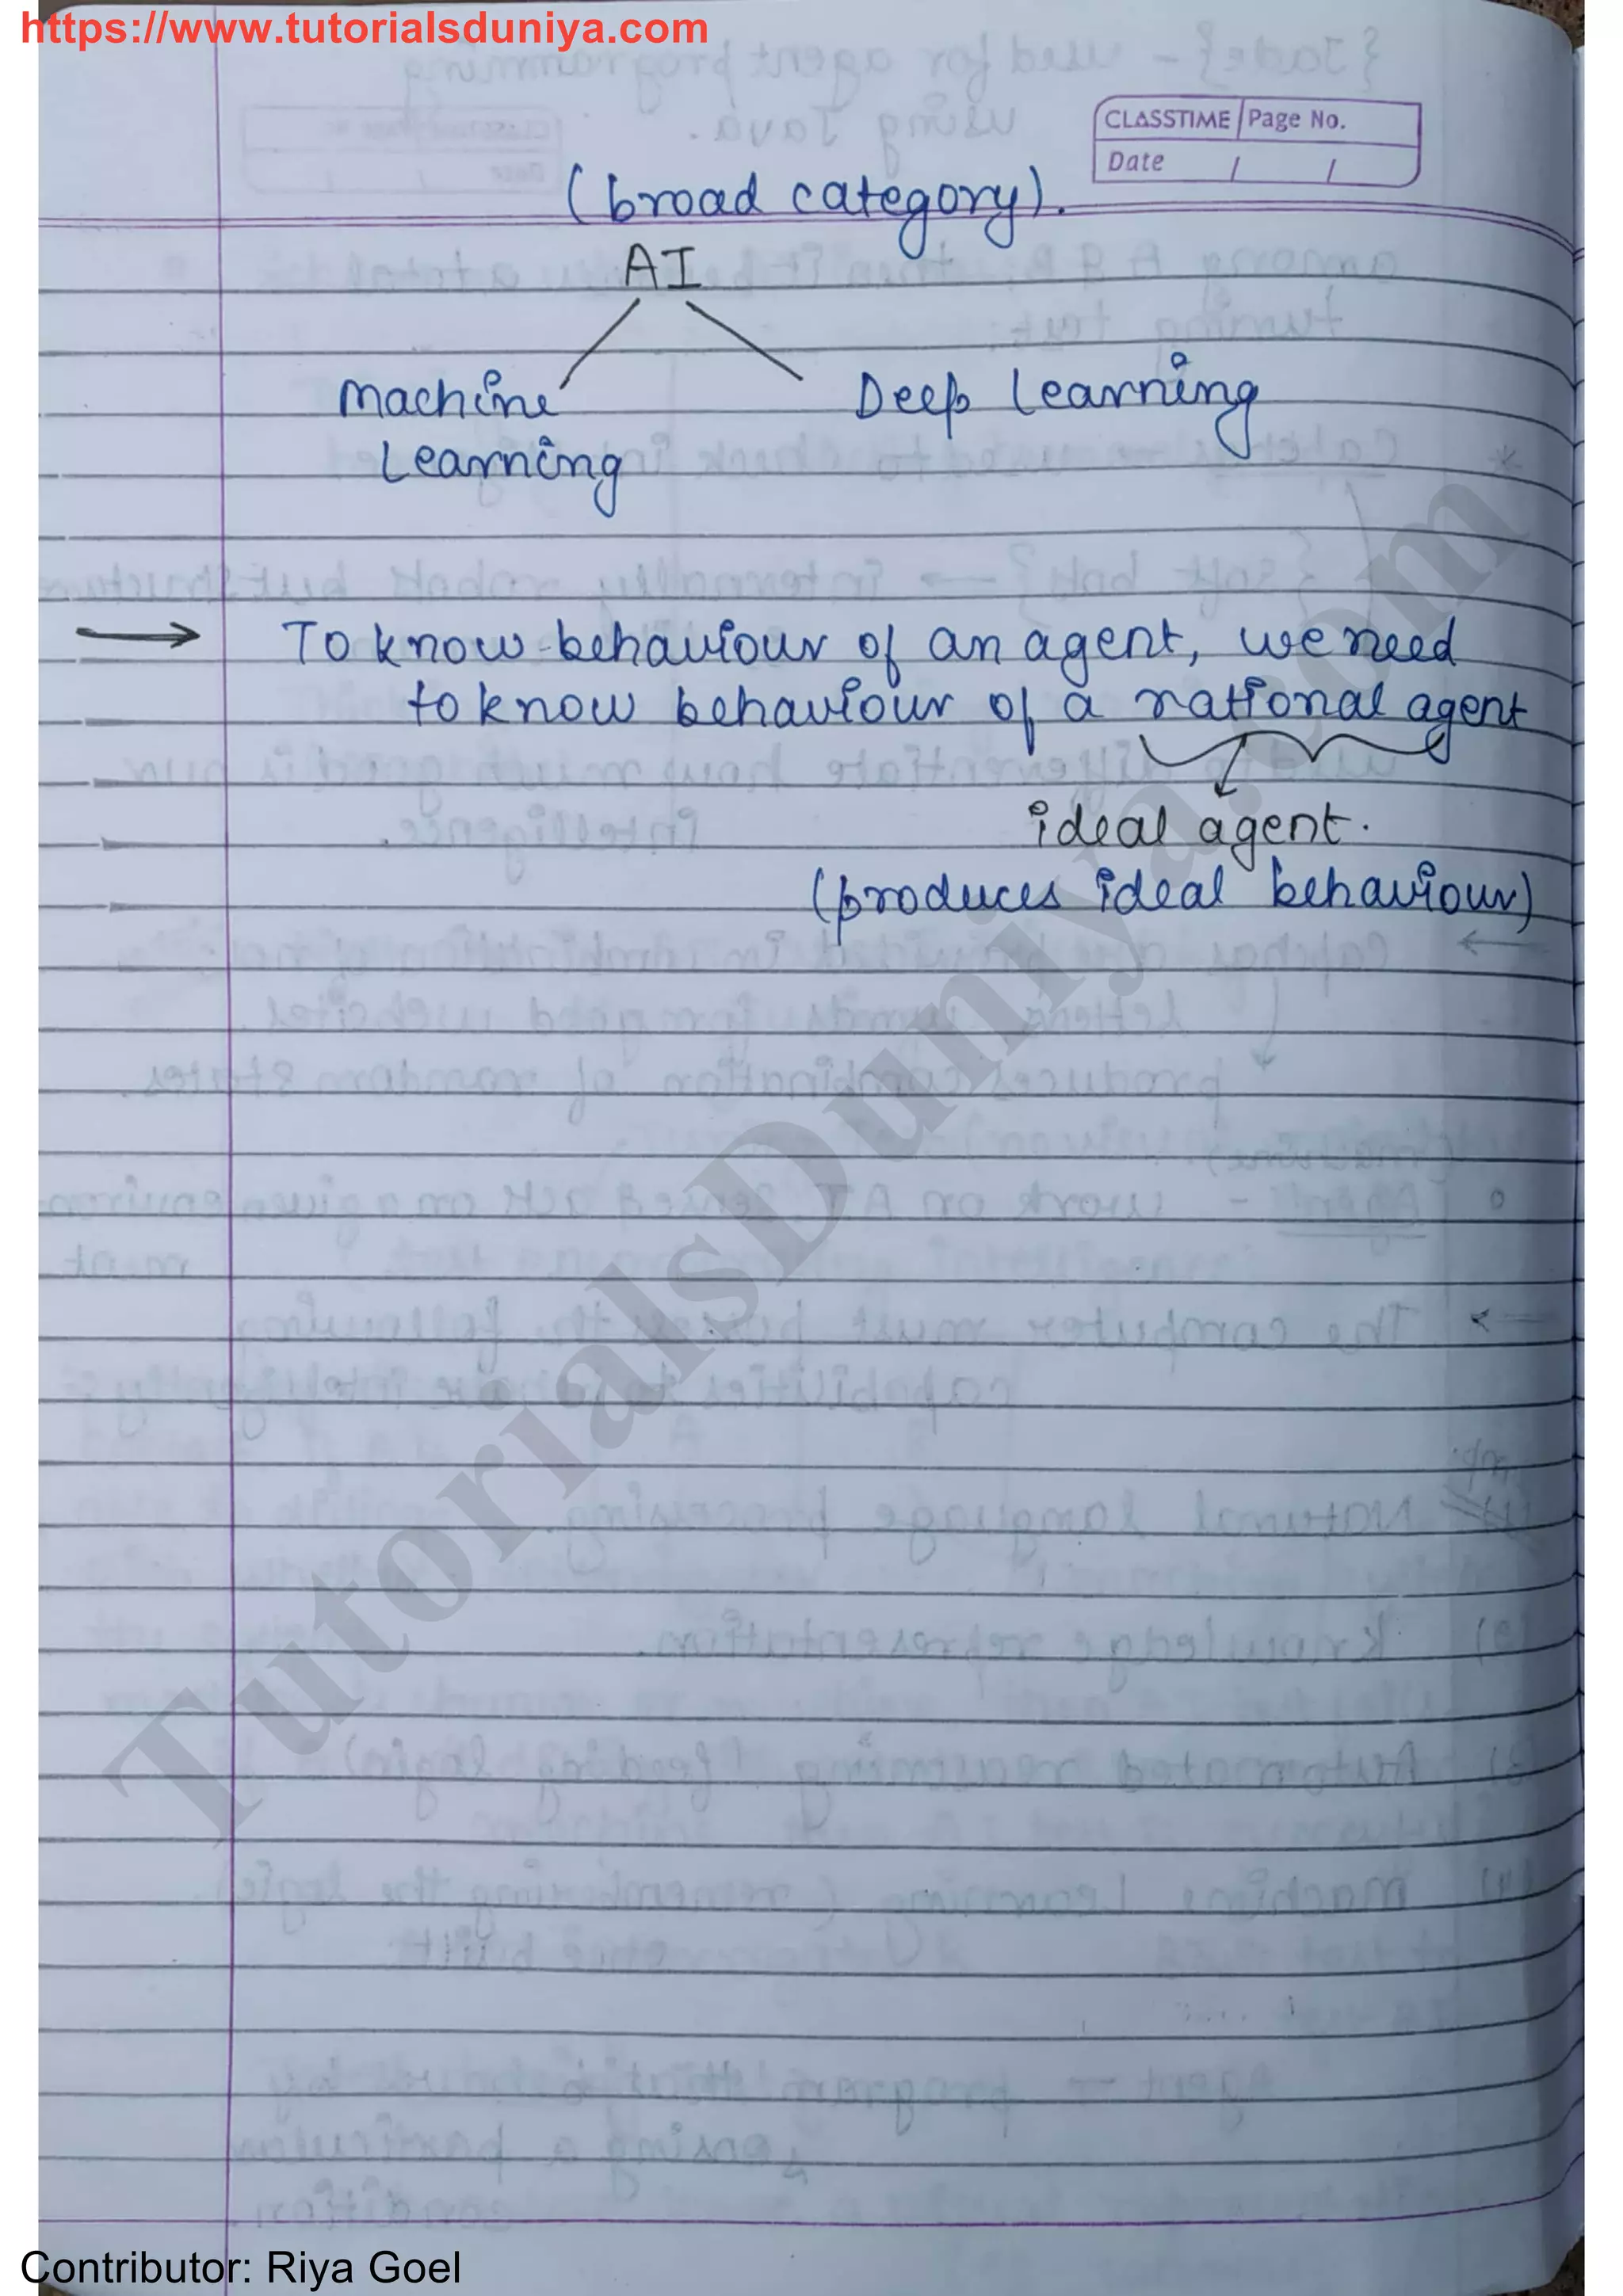 https://www.tutorialsduniya.com
CLASSTIME Page No.
Date / /
(broad category).
AI
Machine Learning
Deep Learning
→ To know behaviour of an agent, we need
to know behaviour of a rational agent
ideal agent.
(produces ideal behaviour)
TutorialsDuniya.com
Contributor: Riya Goel